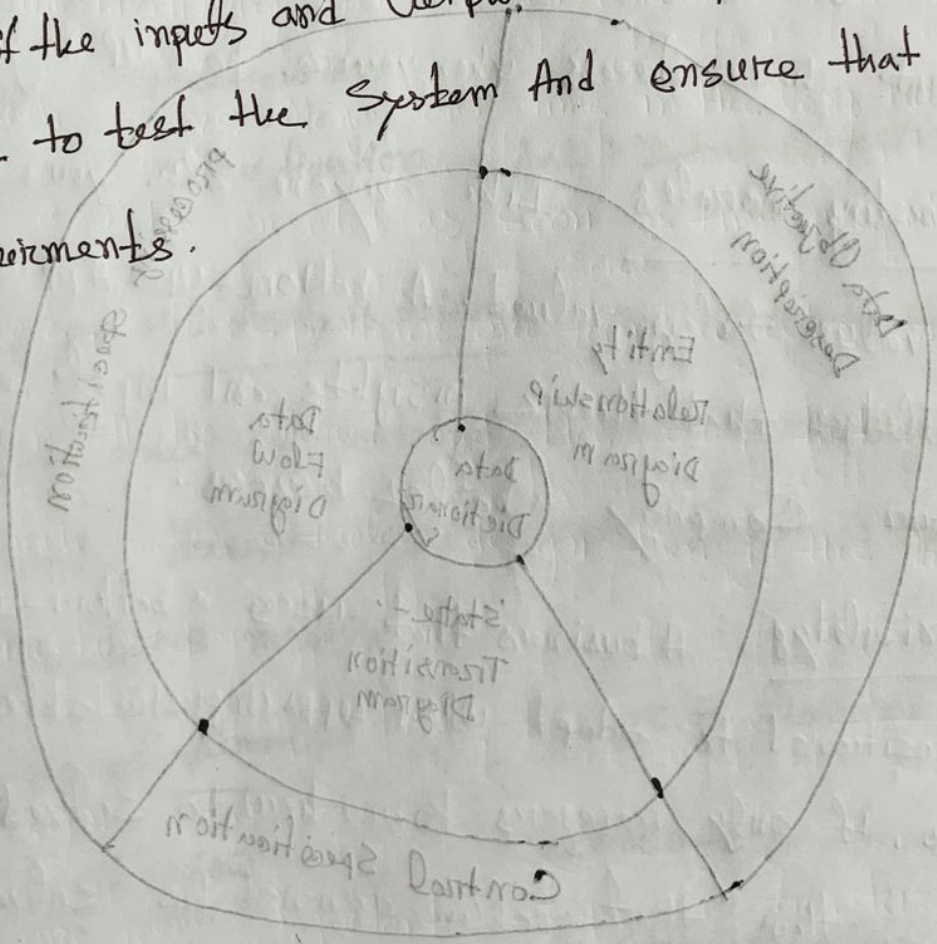 f the inputs and
to test the System And ensure that
Processing
Specification
Data Objective
Description
Entity
Relationship
Diagram
Data
Flow
Diagram
Data
Dictionary
State
Transition
Diagram
Control Specification